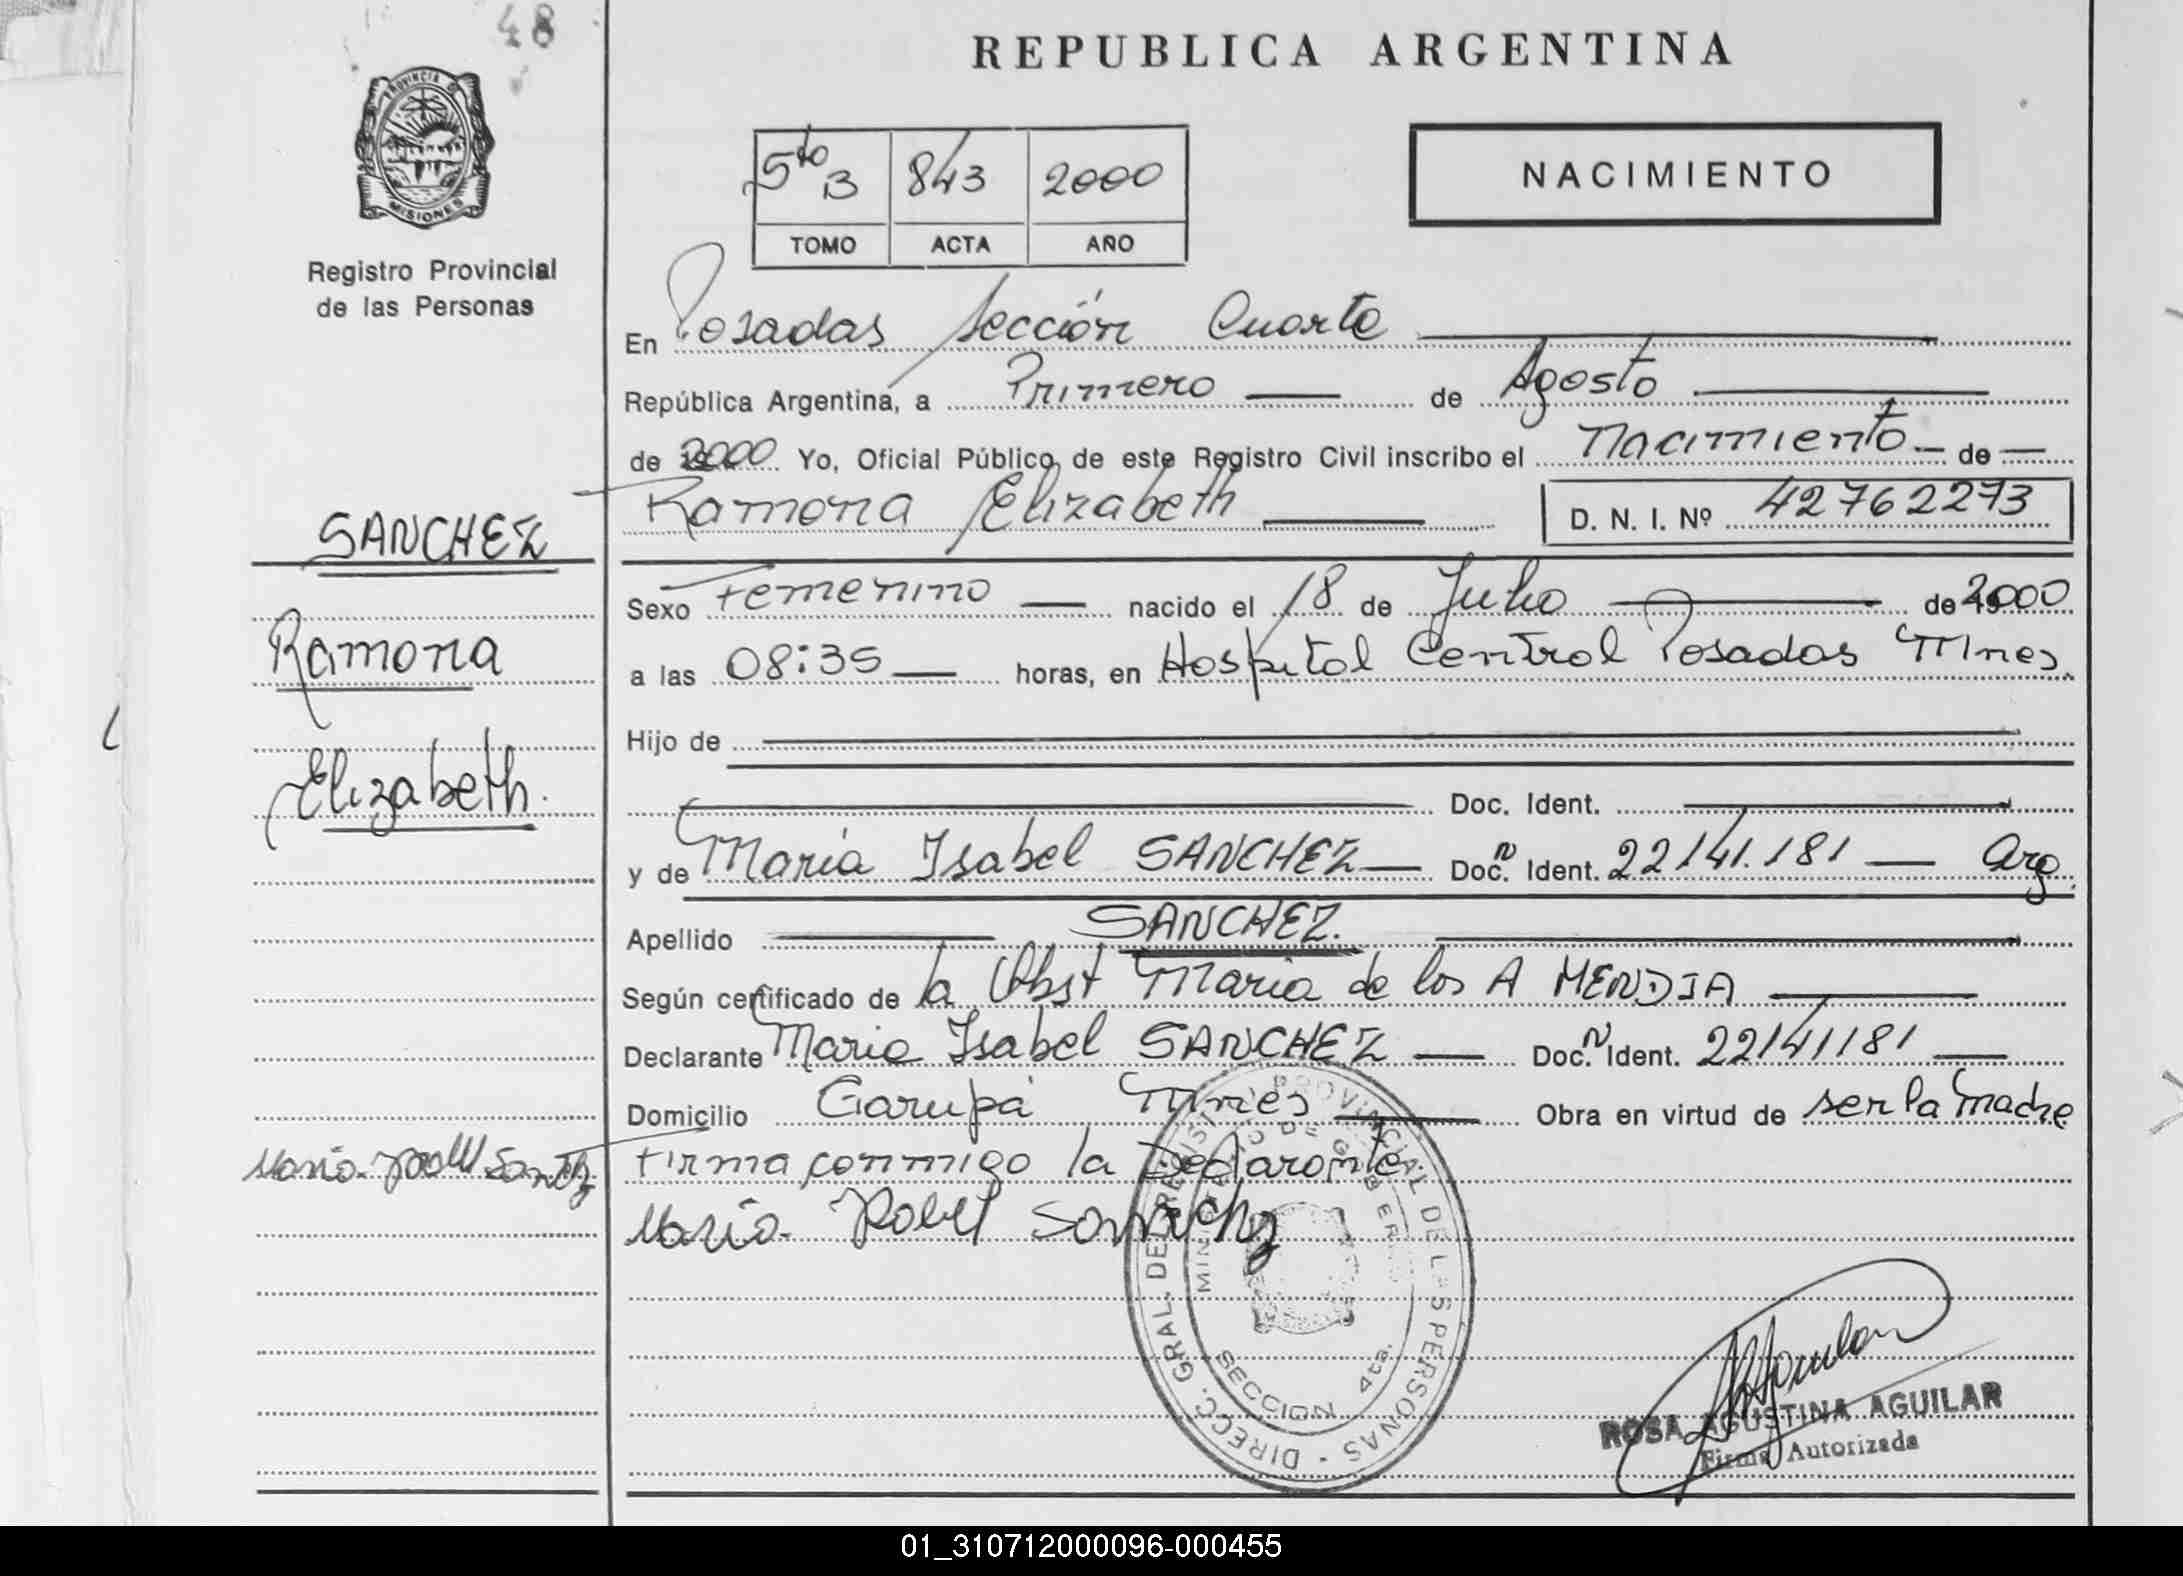 48
REPUBLICA ARGENTINA
PROVINCIA DE
MISIONES
Registro Provincial
de las Personas
5to B 843 2000
TOMO ACTA AÑO
NACIMIENTO
En Posadas Sección Cuarta
República Argentina, a Primero de Agosto
de 2000 Yo, Oficial Público de este Registro Civil inscribo el Nacimiento de
Ramona Elizabeth D. N. I. Nº 42762273
SANCHEZ
Ramona
Elizabeth.
Sexo Femenino nacido el 18 de Julio de 2000
a las 08:35 horas, en Hospital Central Posadas Mnes.
Hijo de
Doc. Ident.
y de Maria Isabel SANCHEZ Doc. N Ident. 22141.181 Arg.
Apellido SANCHEZ.
Según certificado de la Obst Maria de los A MENDIA
Declarante Maria Isabel SANCHEZ Doc. N Ident. 22141181
Domicilio Garupá Mnes Obra en virtud de ser la Madre
Firma conmigo la Declarante.
DIRECC. GRAL. DEL REGISTRO PROVINCIAL DE LAS PERSONAS -
MINISTERIO DE GOBIERNO
SECCION 4ta.
ROSA AGUSTINA AGUILAR
Firma Autorizada
01_310712000096-000455